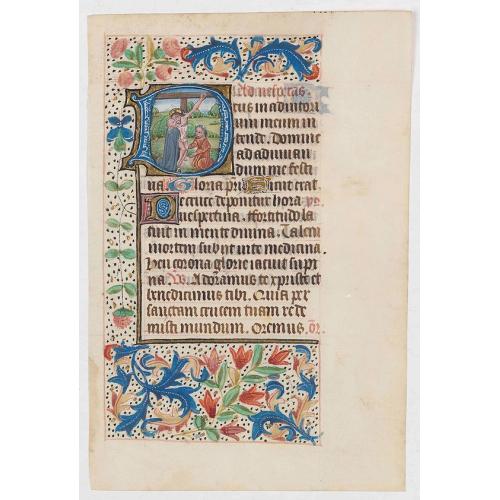 Ad vesperas
Deus in adiutori
um meum in
tende. Domine
ad adiuvan
dum me festi
na Gloria pri Sicut erat
De cruce deponitur hora
vespertina. fortitudo la
tuit in mente divina. Talem
mortem subiit vite medicina
heu corona glorie iacuit supi
na. V. Adoramus te xpriste et
benedicimus tibi. Quia per
sanctam crucem tuam rede
misti mundum. Oremus. or.